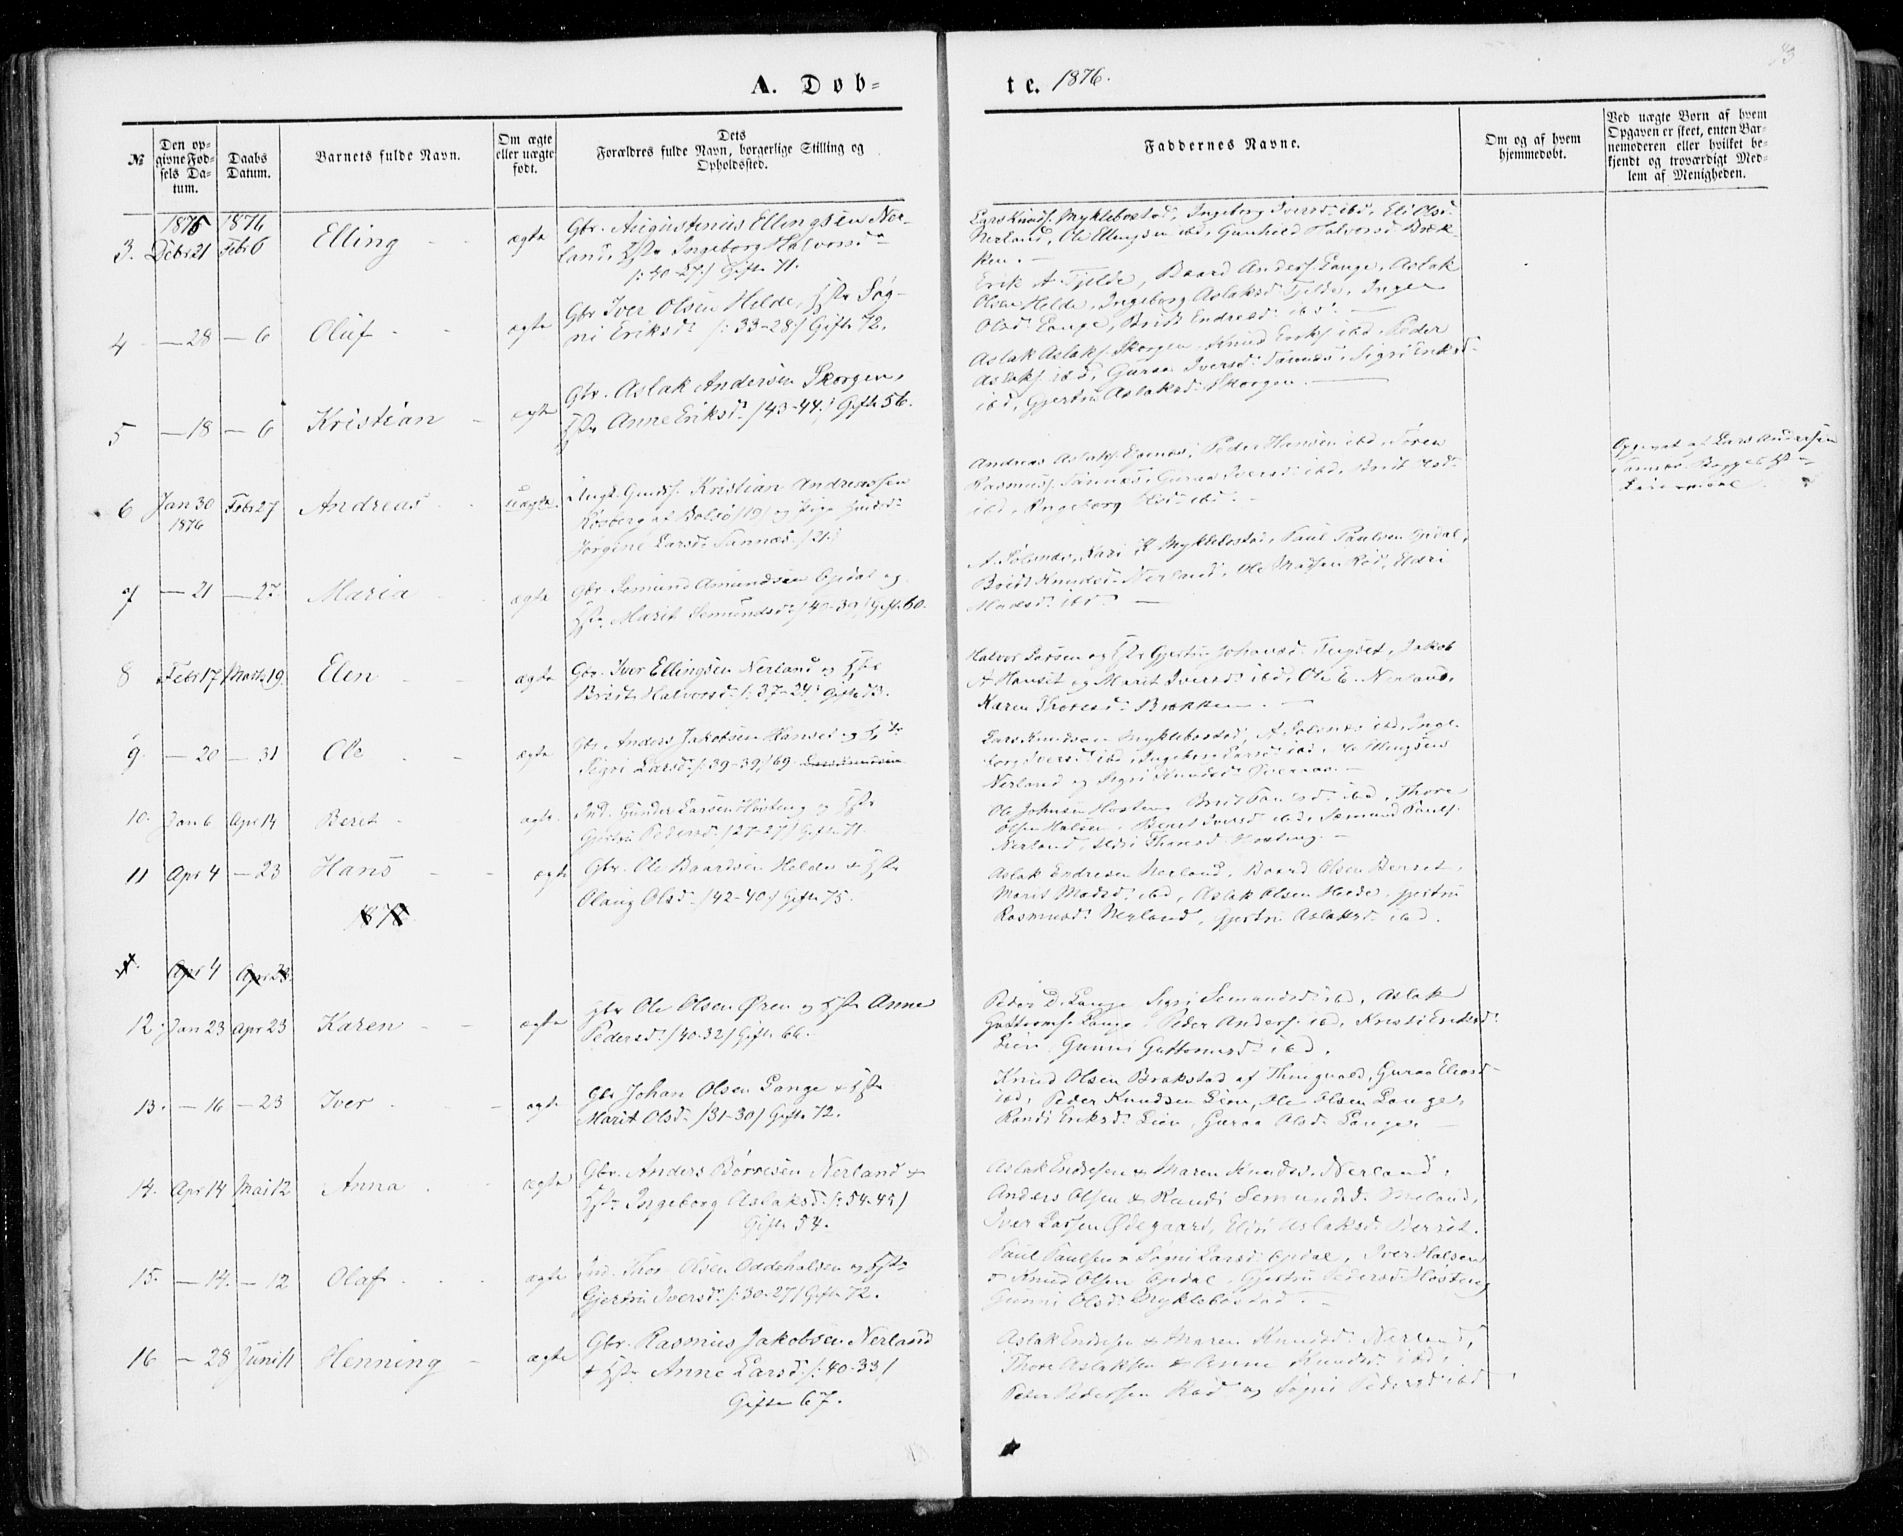 A. Dob-
te. 1876.
№
Den opgivne Fødsels Datum.
Daabs Datum.
Barnets fulde Navn.
Om ægte eller uægte født.
Dets Forældres fulde Navn, borgerlige Stilling og Opholdssted.
Faddernes Navne.
Om og af hvem hjemmedøbt.
Ved uægte Børn af hvem Opgaven er skeet, enten Barnemoderen eller hvilket bekjendt og troværdigt Medlem af Menigheden.
1875 1876
3. Decbr 21 Febr 6 Elling ægte Gbr. Augustinus Ellingsen Ner-
land, Hstr Ingeborg Halvorsd.
/: 40-27/ Gifte 71.
Lars Knuds. Myklebostad, Ingeborg Iversd. ibd, Eli Olsd.
Nerland, Ole Ellingsen ibd, Gunhild Halvorsd Bræk-
ken.
4 — 28 — 6 Oluf ægte Gbr Iver Olsen Helde, Hstr Søg-
ni Eriksd. /: 33-28/ Gifte 72.
Erik A Fjelde, Baard Anders. Lange, Aslak
Olsen Helde, Ingeborg Aslaksd. Fjelde, Inger
Olsd. Lange, Brit Endresd. ibd.
5 — 18 — 6 Kristian ægte Gbr. Aslak Andersen Skorgen,
Hstr Anne Eriksd. /43-44/ Gifte 56.
Aslak Aslaks. Skorgen, Knud Eriks. ibd, Peder
Aslaks. ibd, Guraa Iversd. Sannæs, Sigri Eriksd.
ibd, Gjertru Aslaksd. Skorgen.
6 Jan 30 Febr 27 Andreas uægte Ungk. Kristian Andreassen
1876
af Bolsø /19/ og Pige
Jørgine Larsd. Sannæs /21/
Andreas Aslaks. Peder Hansen ibd, Søren
Rasmus. Sannæs, Guraa Iversd. ibd, Brit
ibd, Ingeborg Olsd. ibd.
Opgivet af Lars Andersen
7 — 21 — 27 Maria ægte Gbr. Semund Amundsen Opdal og
Hstr Marit Semundsd. /40-39/ Gifte 60.
A. Solsnæs, Kari K Myklebostad, Paul Paulsen Opdal,
Brit Knudsd. Nerland, Ole Madsen Rød, Mari
Madsd. ibd.
8 Febr 17 Marts 19. Elen ægte Gbr. Iver Ellingsen Nerland og Hstr
Brit Halvorsd. /: 37-34/ Gifte 73.
Halvor Larsen og Hstr Gjertru Johansd. Jakob
A Hanset og Marit Iversd. ibd, Ole E. Nerland,
Karen Thoresd. Brækken.
9. — 20 — 31 Ole ægte Gbr. Anders Jakobsen Hanset og Hstr
Sigri Larsd. /: 39-39/ 69.
Lars Knudsen Myklebostad, A. Solsnæs ibd, Inge-
borg Iversd. ibd, Ingeborg Larsd. ibd, Ole Ellingsen
Nerland og Sigri Knudsd.
10. Jan 6 Apr 14 Beret ægte Ind. Gunder Larsen Høsteng og Hstr
Gjertru Pedersd. /27-27/ Gifte 71.
Ole Johnsen Høsteng, Brit ibd, Thore
Olsen Halsen, Beret Iversd. ibd, Semund Pauls.
Nerland, Høsteng.
11 Apr 4 — 23 Hans ægte Gbr. Ole Baardsen Helde & Hstr
Olaug Olsd. /42-40/ Gifte 75.
Aslak Endresen Nerland, Baard Olsen Berset,
Marit Madsd. ibd, Aslak Olsen Helde, Gjertru
Rasmusd. Nerland, Gjertru Aslaksd. ibd.
1876
Apr 4 Apr 23.
12. Jan 23 Apr 23 Karen ægte Gbr Ole Olsen Øren og Hstr Anne
Pedersd. /40-32/ Gifte 66.
Peder D. Lange, Sigri Semundsd. ibd, Aslak
Guttorms. Lange, Peder Anders. ibd, Kristi Eriksd.
Lien, Gunni Guttormsd. ibd.
13. — 16 — 23 Iver ægte Gbr Johan Olsen Lange & Hstr
Marit Olsd. /31-30/ Gifte 72.
Knud Olsen Brakstad af Thingvold, Guraa
ibd, Peder Knudsen Lien, Ole Olsen Lange,
Randi Eriksd. Lien, Guraa Olsd. Lange.
14. Apr 14 Mai 12 Anna ægte Gbr. Anders Børresen Nerland &
Hstr Ingeborg Aslaksd. /: 54-45/
Gifte 54.
Aslak Endresen & Maren Knudsd. Nerland,
Anders Olsen & Randi Semundsd.
Iver Larsen Ødegaard, Eldri Aslaksd. Berset.
15. — 14. — 12 Olaf ægte Ind. Thor Olsen Oddehalsen og Hstr
Gjertru Iversd. /: 30-27/ Gifte 72.
Paul Paulsen & Søgni Larsd. Opdal, Iver Halsen
& Knud Olsen Opdal, Gjertru Pedersd. Høsteng
Gunni Olsd. Myklebostad.
16 — 28 Juni 11 Henning ægte Gbr. Rasmus Jakobsen Nerland
& Hstr Anne Larsd. /: 40-33/
Gifte 67.
Aslak Endresen & Maren Knudsd. Nerland,
Thore Aslaksen & Anne Knudsd. ibd,
Peter Pedersen Rød og Søgni Pedersd ibd